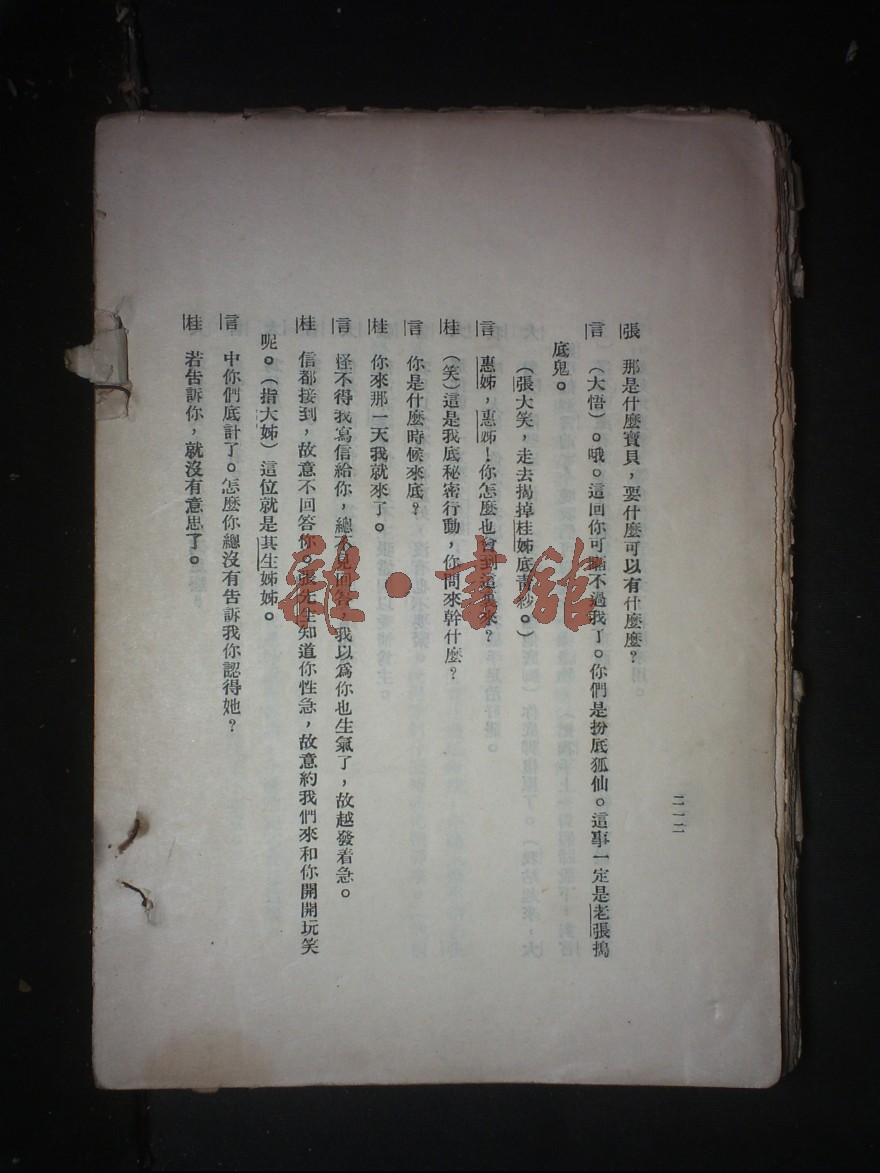 張　那是什麼寶貝，要什麼可以有什麼麼？
言　（大悟）。哦。這回你可瞞不過我了。你們是扮底狐仙。這事一定是老張搗
底鬼。
（張大笑，走去揭掉桂姊底靑紗。）
言　惠姊，惠姊！你怎麼也會到這裏來？
桂　（笑）這是我底秘密行動，你問來幹什麼？
言　你是什麼時候來底？
桂　你來那一天我就來了。
言　怪不得我寫信給你，總不見回答，我以爲你也生氣了，故越發着急。
桂　信都接到，故意不回答你。張先生知道你性急，故意約我們來和你開開玩笑
呢。（指大姊）這位就是其生姊姊。
言　中你們底計了。怎麼你總沒有告訴我你認得她？
桂　若告訴你，就沒有意思了。
二一二
雜·書館